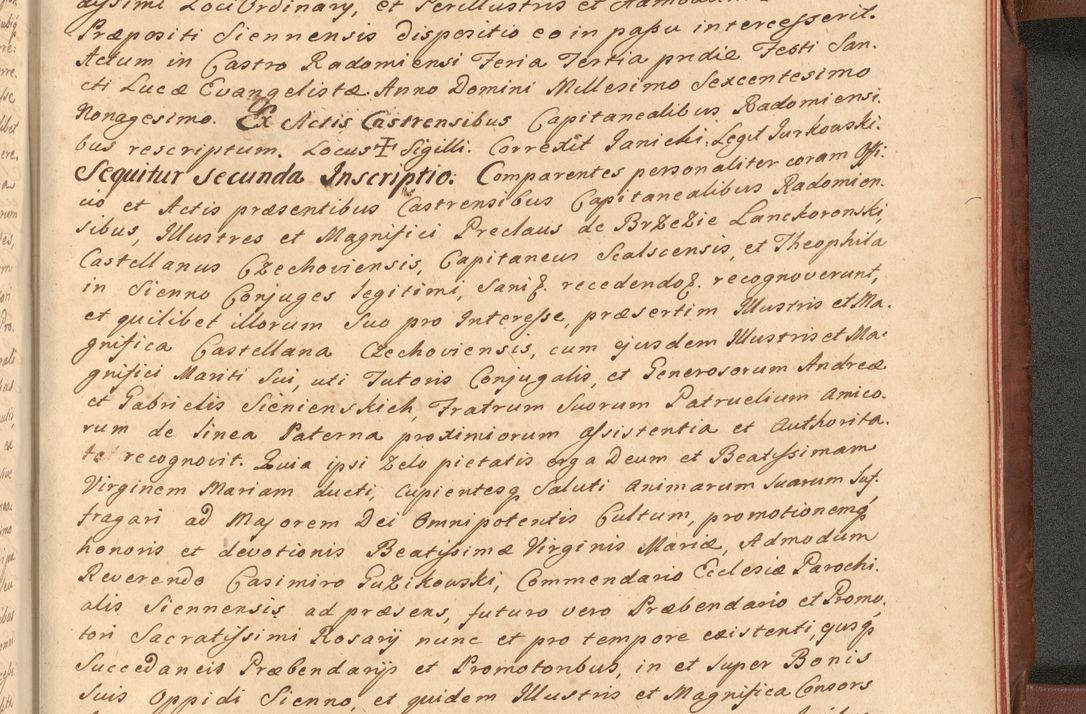 dyssimi Loci Ordinary, et Perillustris et Admodum
Præpositi Siennensis dispositio eo in passu intercesserit.
Actum in Castro Radomiensi Feria Tertia pridie Festi San-
cti Lucæ Evangelistæ. Anno Domini Millesimo Sexcentesimo
Nonagesimo. Ex Actis Castrensibus Capitanealibus Radomiensi-
bus rescriptum. Locus ☩ Sigilli. Correxit Janicki. Legit Jurkowski.
Sequitur secunda Inscriptio. Comparentes personaliter coram Offi-
cio et Actis præsentibus Castrensibus Capitanealibus Radomien-
sibus, Illustres et Magnifici Preclaus de BrZeZie Lanckoronski
Castellanus CZechoviensis, Capitaneus Scalscensis, et Theophila
in Sienno Conjuges legitimi, Saniꝫ. recedendoꝫ. recognoverunt,
et quilibet illorum suo pro Interesse, præsertim Illustris et Ma-
gnifica Castellana CZechoviensis, cum ejusdem Illustris et Ma-
gnifici Mariti sui, uti Tutoris Conjugalis, et Generosorum Andreæ
et Gabrielis Sienienskich, Fratrum Suorum Patruelium amico-
rum de linea Paterna proximiorum assistentia et authorita-
te recognovit. Quia ipsi Zelo pietatis erga Deum et Beatissimam
Virginem Mariam ducti, cupientesq̃ Saluti animarum suarum suf-
fragari ad Majorem Dei Omnipotentis Cultum, promotionemq̃
honoris et devotionis Beatissimæ Virginis Mariæ, Admodum
Reverendo Casimiro GuZikowski, Commendario Ecclesiæ Parochi-
alis Siennensis ad præsens, futuro vero Præbendario et Promo-
tori Sacratissimi Rosarij nunc et pro tempore existenti, ejusq̃
Succedaneis Præbendarijs et Promotoribus, in et super Bonis
Suis Oppidi Sienno, et quidem Illustris et Magnifica Consors